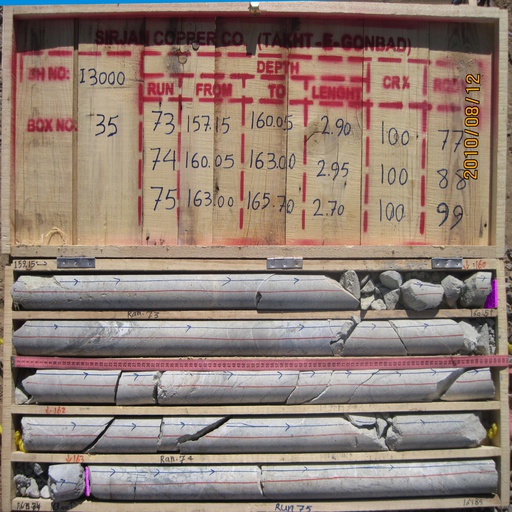 SIRJAN COPPER CO. (TAKHT-E-GONBAD)
BH NO: 13000
DEPTH
RUN FROM TO LENGHT CR% RQD
BOX NO: 35
73 157.15 160.05 2.90 100 77
74 160.05 163.00 2.95 100 88
75 163.00 165.70 2.70 100 99
2010/08/12
Run.73
Run.74
Run 75